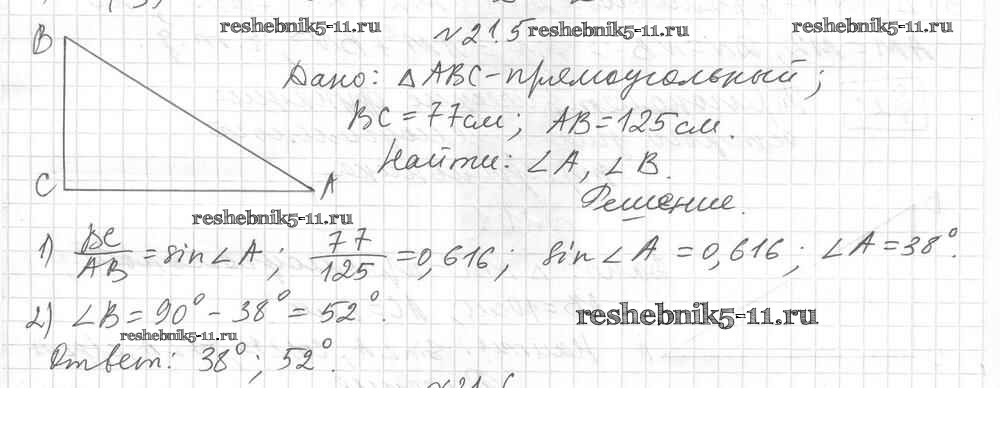 reshebnik5-11.ru
№ 21.5 reshebnik5-11.ru
reshebnik5-11.ru
B
Дано: △ ABC - прямоугольный;
BC = 77 см; AB = 125 см.
Найти: ∠ A, ∠ B.
C
A
Решение.
reshebnik5-11.ru
1) BC/AB = sin ∠ A; 77/125 = 0,616; sin ∠ A = 0,616; ∠ A = 38°.
2) ∠ B = 90° - 38° = 52°.
reshebnik5-11.ru
reshebnik5-11.ru
Ответ: 38°; 52°.